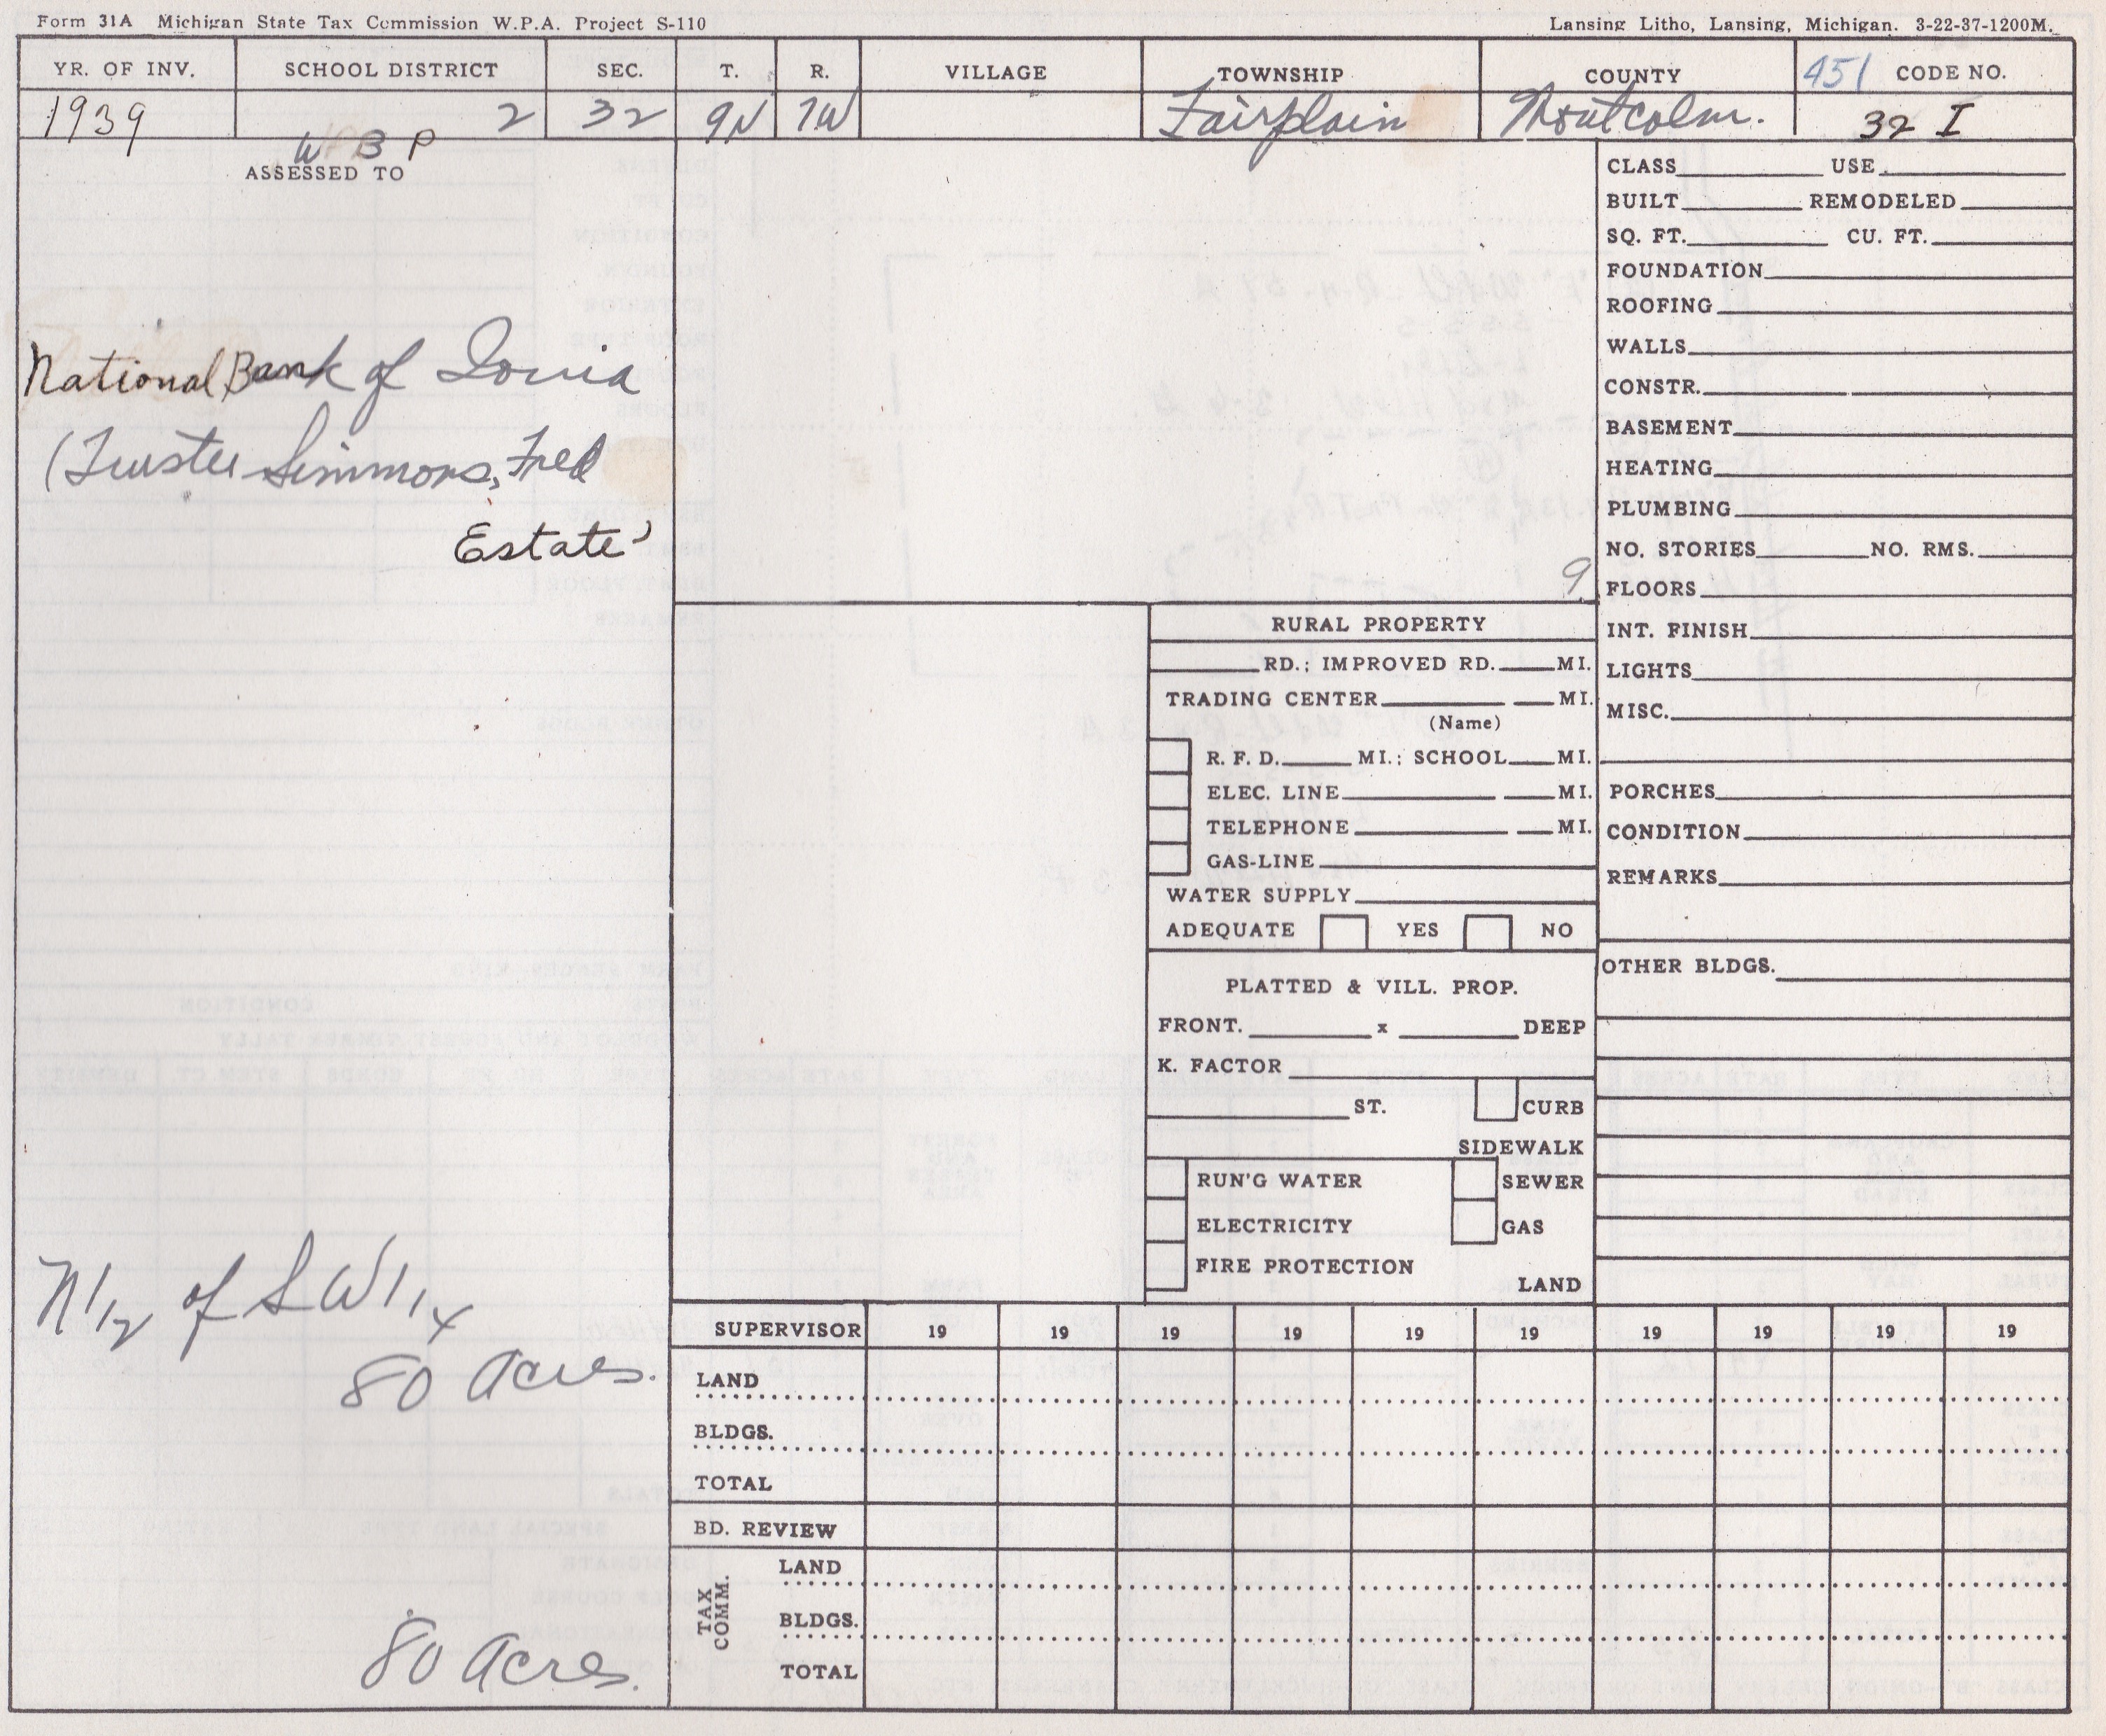 Form 31A Michigan State Tax Commission W.P.A. Project S-110
Lansing Litho, Lansing, Michigan. 3-22-37-1200M.
YR. OF INV. SCHOOL DISTRICT SEC. T. R. VILLAGE TOWNSHIP COUNTY 451 CODE NO.
1939 2 32 9N 7W Fairplain Montcalm. 32 I
W B P
ASSESSED TO
National Bank of Ionia
(Trustee Simmons, Fred
Estate)
N 1/2 of S W 1/4
80 Acres.
80 Acres.
9
RURAL PROPERTY
RD.; IMPROVED RD. MI.
TRADING CENTER MI.
(Name)
R. F. D. MI.: SCHOOL MI.
ELEC. LINE MI.
TELEPHONE MI.
GAS-LINE
WATER SUPPLY
ADEQUATE YES NO
PLATTED & VILL. PROP.
FRONT. x DEEP
K. FACTOR
ST. CURB
SIDEWALK
RUN'G WATER SEWER
ELECTRICITY GAS
FIRE PROTECTION
LAND
CLASS USE
BUILT REMODELED
SQ. FT. CU. FT.
FOUNDATION
ROOFING
WALLS
CONSTR.
BASEMENT
HEATING
PLUMBING
NO. STORIES NO. RMS.
FLOORS
INT. FINISH
LIGHTS
MISC.
PORCHES
CONDITION
REMARKS
OTHER BLDGS.
SUPERVISOR 19 19 19 19 19 19 19 19 19 19
LAND
BLDGS.
TOTAL
BD. REVIEW
TAX COMM.
LAND
BLDGS.
TOTAL